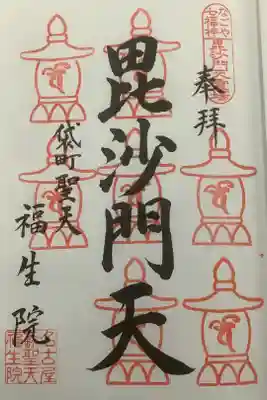 なごや
七福神
奉拝
毘沙門天
袋町聖天
福生院
名古屋
聖天
福生院